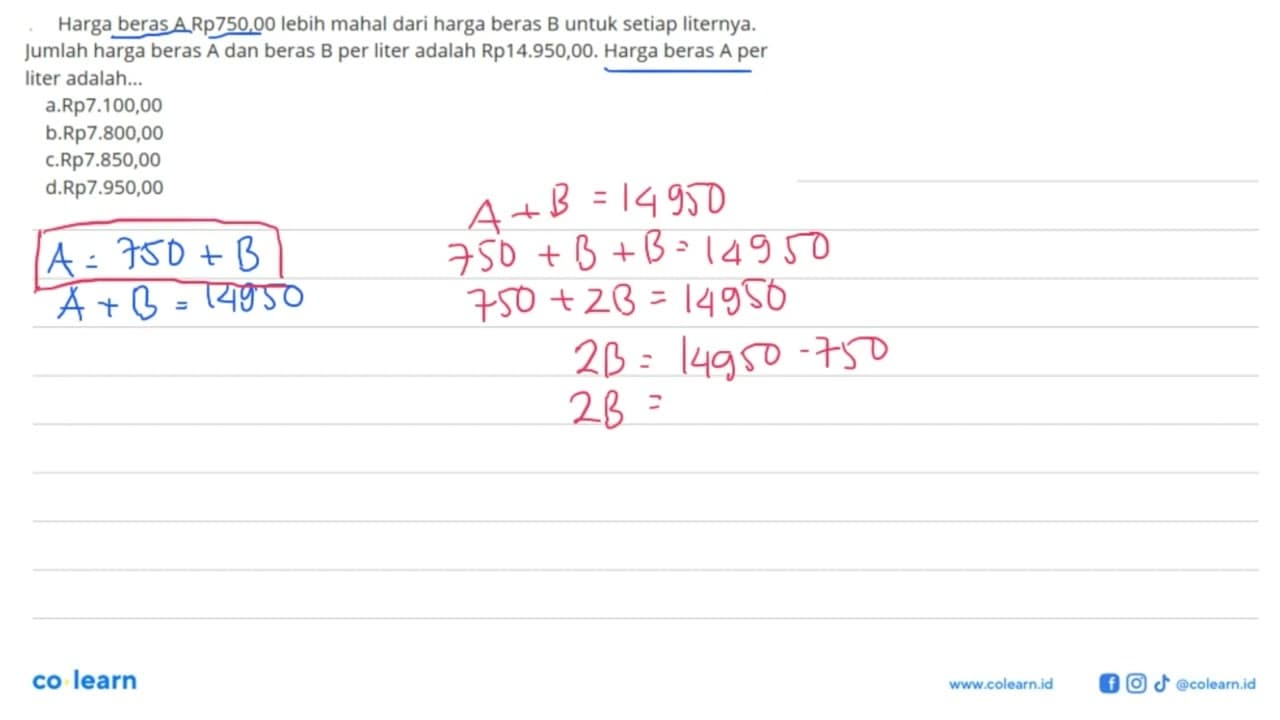 Harga beras A Rp750,00 lebih mahal dari harga beras B untuk setiap liternya.
Jumlah harga beras A dan beras B per liter adalah Rp14.950,00. Harga beras A per
liter adalah...
a.Rp7.100,00
b.Rp7.800,00
c.Rp7.850,00
d.Rp7.950,00
A = 750 + B
A + B = 14950
A + B = 14950
750 + B + B = 14950
750 + 2B = 14950
2B = 14950 - 750
2B =
co learn
www.colearn.id
@colearn.id